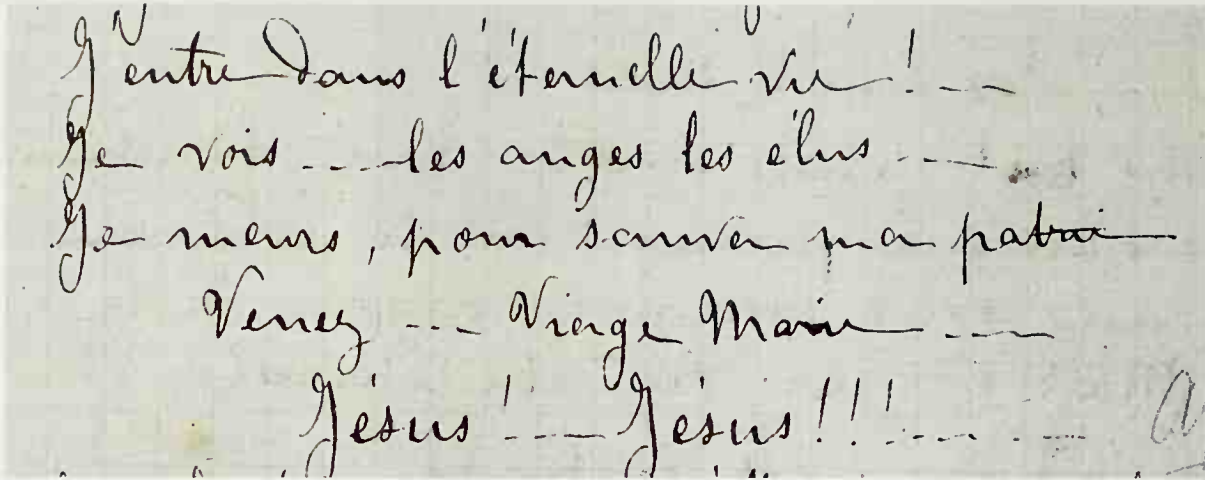 J'entre dans l'éternelle vie !...
Je vois .... les anges les élus ....
Je meurs, pour sauver ma patrie
Venez .... Vierge Marie ....
Jésus ! .... Jésus !!! ....